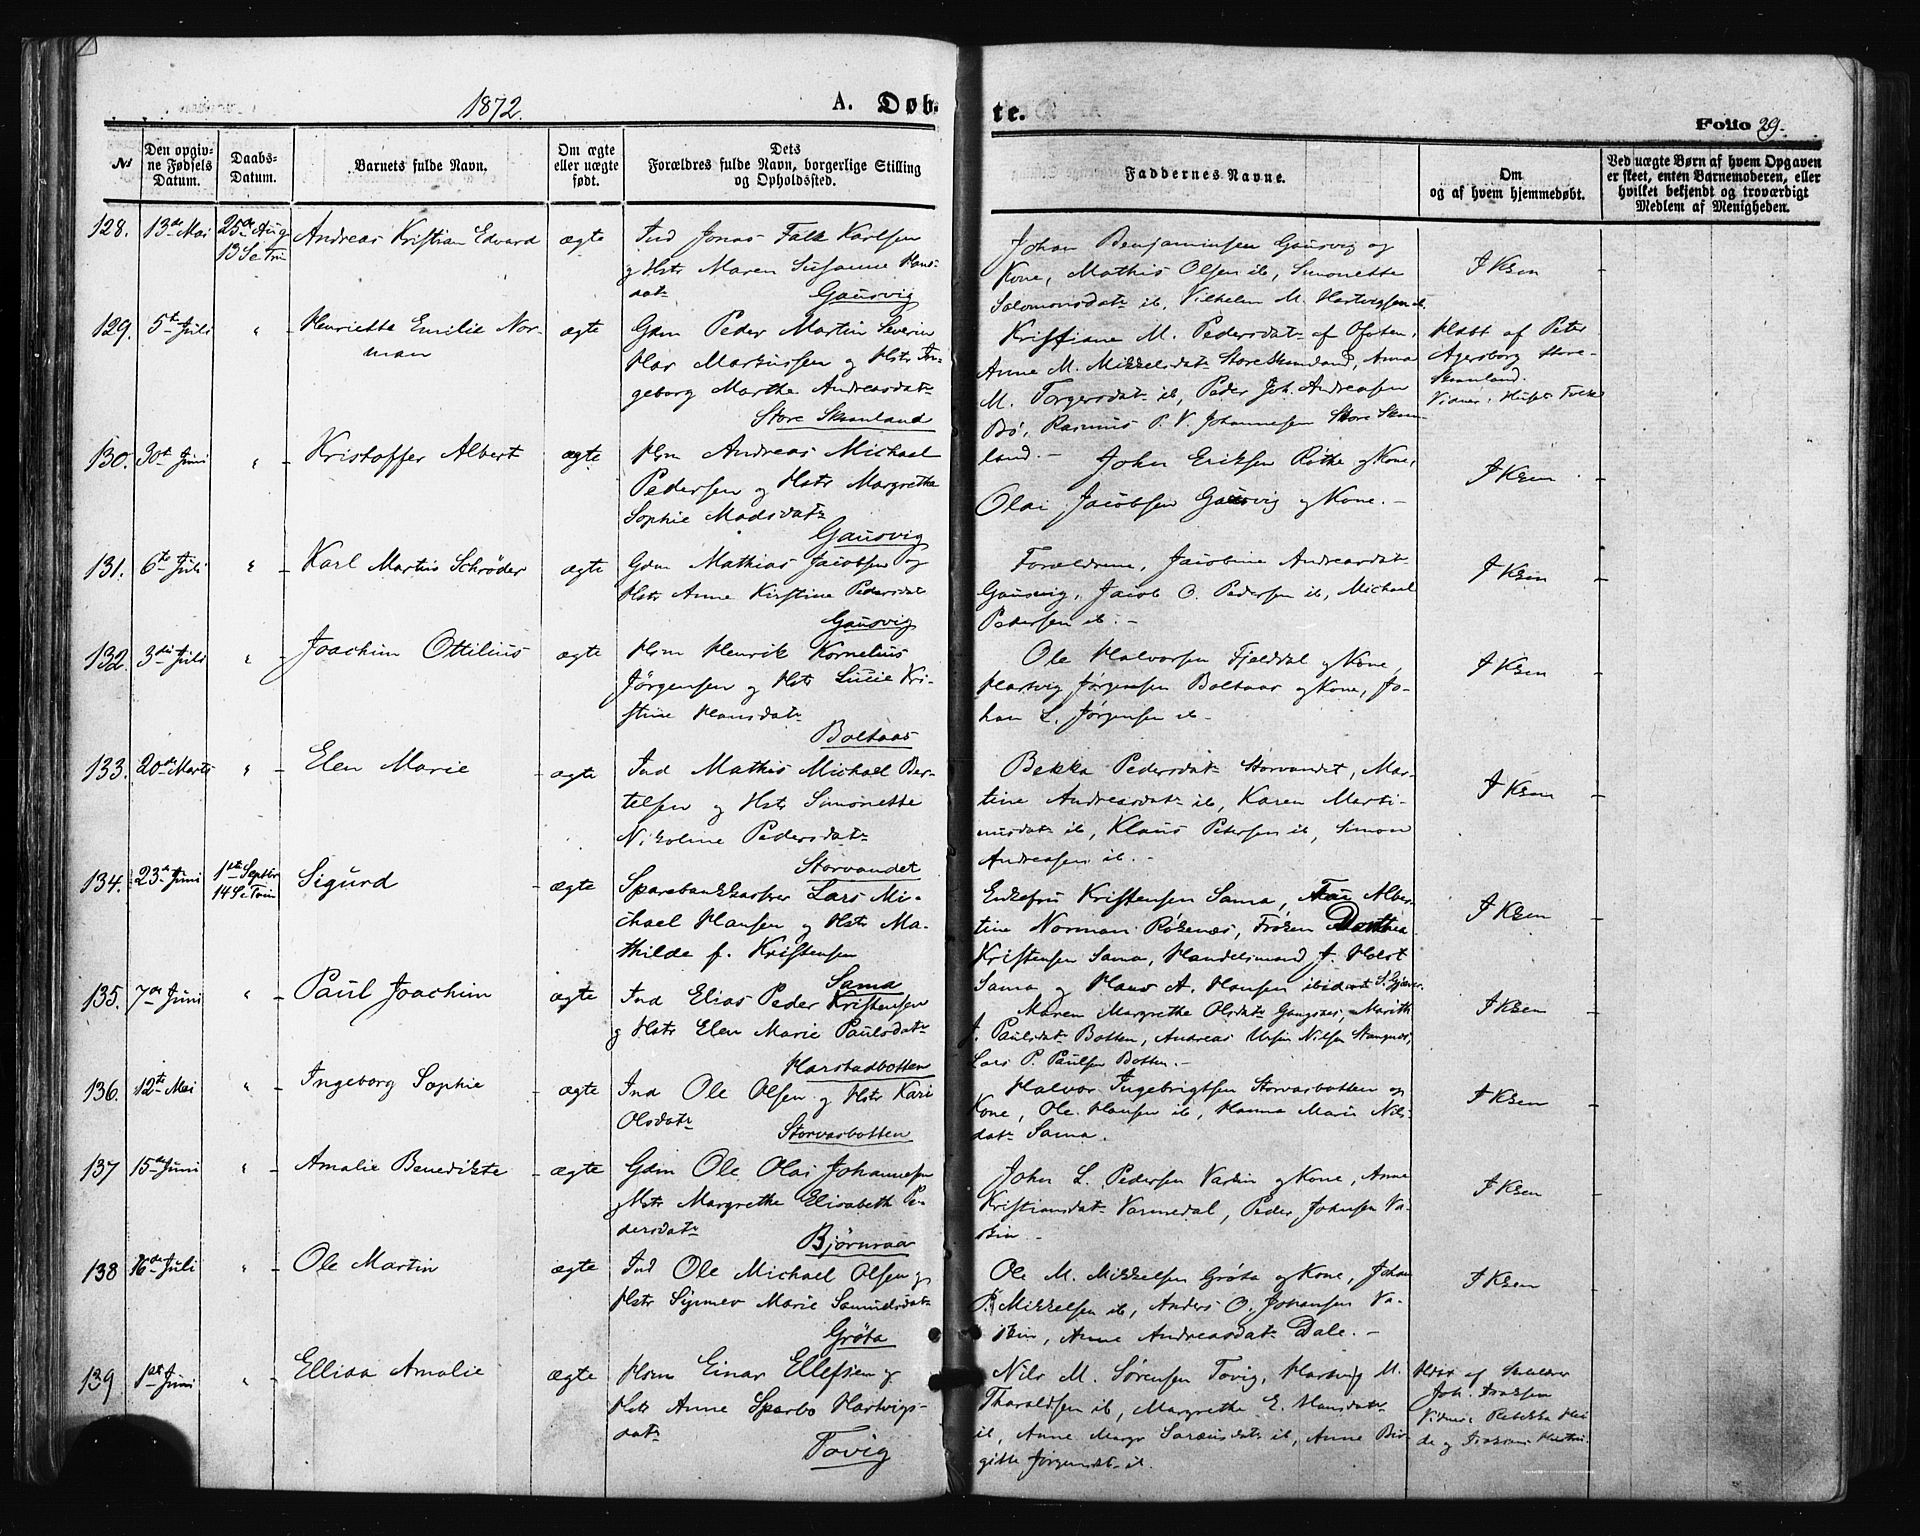 1872.
A. Døb-
te.
Folio 29.
No
Den opgiv-
ne Fødsels
Datum.
Daabs-
Datum.
Barnets fulde Navn.
Om ægte
eller uægte
født.
Dets
Forældres fulde Navn, borgerlige Stilling
og Opholdssted.
Faddernes Navne.
Om
og af hvem hjemmedøbt.
Ved uægte Børn af hvem Opgaven
er skeet, enten Barnemoderen, eller
hvilket bekjendt og troværdigt
Medlem af Menigheden.
128. 13de Mai 25de Aug
13 S e Tri
Andreas Kristian Edvard ægte
Ind Jonas Falk Karlsen
og Hstr Maren Susanne Hans-
datr Gausvig
Johan Benjaminsen Gausvig og
Kone, Mathis Olsen ib, Simonette
Salomonsdatr ib, Vilhelm M. Hartvigsen ib.
I Ksen
129. 5te Juli " Henriette Emilie Nor-
man
ægte
Gdm Peder Martin Severin
Markussen og Hstr In-
geborg Marthe Andreasdatr
Store Skaanland
Kristiane M. Pedersdatr af Ofoten,
Anne M. Mikkelsdatr Store Skaanland, Anna
M. Torgersdatr ib, Peder Joh. Andreasen
Bø, Rasmus P. V. Johannesen Store Skaan-
land. -
Hdbt af Peter
Agersborg Store-
Skaanland.
130. 30te Juni " Kristoffer Albert ægte
Hsm Andreas Michael
Pedersen og Hstr Margrethe
Sophie Madsdatr
Gausvig
John Eriksen Røkke og Kone,
Olai Jacobsen Gausvig og Kone. -
I Ksen
131. 6te Juli " Karl Martin Schrøder ægte
Gdm Mathias Jacobsen og
Hstr Anne Kirstine Pedersdatr
Gausvig
Forældrene, Jacobine Andreasdatr
Gausvig, Jacob O. Pedersen ib, Michael
Pedersen ib. -
I Ksen
132 3die Juli " Joachim Ottilius ægte
Hsm Henrik Kornelius
Jørgensen og Hstr Lucie Kri-
stine Hansdatr
Boltaas
Ole Halvorsen Fjelddal og Kone,
Hartvig Jørgensen Boltaas og Kone, Jo-
han L. Jørgensen ib -
I Ksen
133. 20de Marts " Elen Marie - ægte
Ind Mathis Michael Ber-
telsen og Hstr Simonette
Nikoline Pedersdatr
Storvandet
Bekka Pedersdatr Storvandet, Mar-
tine Andreasdatr ib, Karen Marti-
nusdatr ib, Klaus Petersen ib, Simon
Andreasen ib. -
I Ksen
134. 23de Juni 1ste Septbr
14 S e Trin
Sigurd - ægte
Sparebankkasserer Lars Mi-
chael Hansen og Hstr Ma-
thilde f. Kristensen
Sama
Enkefru Kristensen Sama, Fru Alber-
tine Norman Røkenæs, Frøken Dorthea
Kristensen Sama, Handelsmand J. Holst
Sama og Hans A. Hansen
I Ksen
135. 7de Juni " Paul Joachim ægte
Ind Elias Peder Kristensen
og Hstr Elen Marie Paulsdatr
Harstadbotten
Maren Margrethe Olsdatr Gangsaas, Marith
J. Paulsdatr Botten, Andreas Nilsen Stangnes,
Lars P. Paulsen Botten. -
I Ksen
136. 12te Mai " Ingeborg Sophie - ægte
Ind Ole Olsen og Hstr Kari
Olsdatr
Storvasbotten
Halvor Ingebrigtsen Storvasbotten og
Kone, Ole Hansen ib, Hanna Marie Nils-
datr Sama.
I Ksen
137 15de Juni " Amalie Benedikte - ægte
Gdm Ole Olai Johannesen
og Hstr Margrethe Elisabeth Pe-
dersdatr
Bjørnraa
John L. Pedersen Vaskin og Kone, Anne
Kristiansdatr Varmedal, Peder Johnsen Va-
skin. -
I Ksen
138 16de Juli " Ole Martin ægte
Ind Ole Michael Olsen og
Hstr Synnev Marie Samuelsdatr
Grøta
Ole M. Mikkelsen Grøta og Kone, Johan
P. Mikkelsen ib, Anders O. Johansen Va-
skin, Anne Andreasdatr Dale. -
I Ksen
139 1ste Juni " Ellida Amalie ægte
Hsm Einar Ellefsen og
Hstr Anne Sparbo Hartvigs-
datr
Tovig
Nils M. Sørensen Tovig, Hartvig M.
Tharaldsen ib, Margrethe E. Hansdatr
ib, Anne Margr Sørensdatr ib, Anne Bir-
gitte Jørgensdatr ib.
Hdbt af Skolelærer
Joh. Isaksen